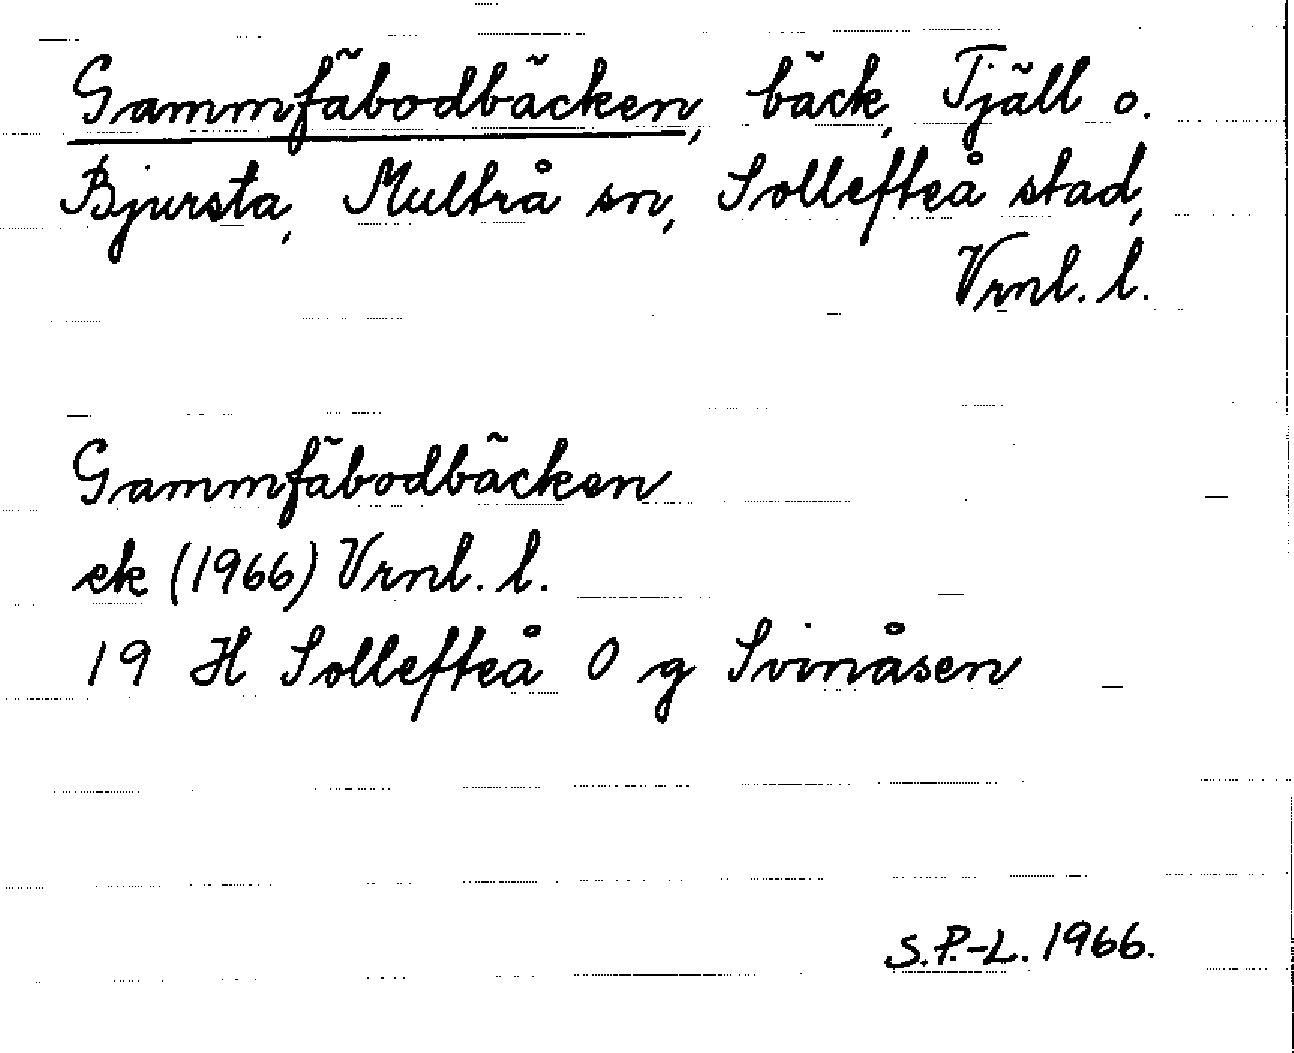 Gammfäbodbäcken, bäck, Tjäll o.
Bjursta, Multrå sn, Sollefteå stad,
Vrnl. l.
Gammfäbodbäcken
ek (1966) Vrnl. l.
19 H Sollefteå O g Svinåsen
S.P.-L. 1966.